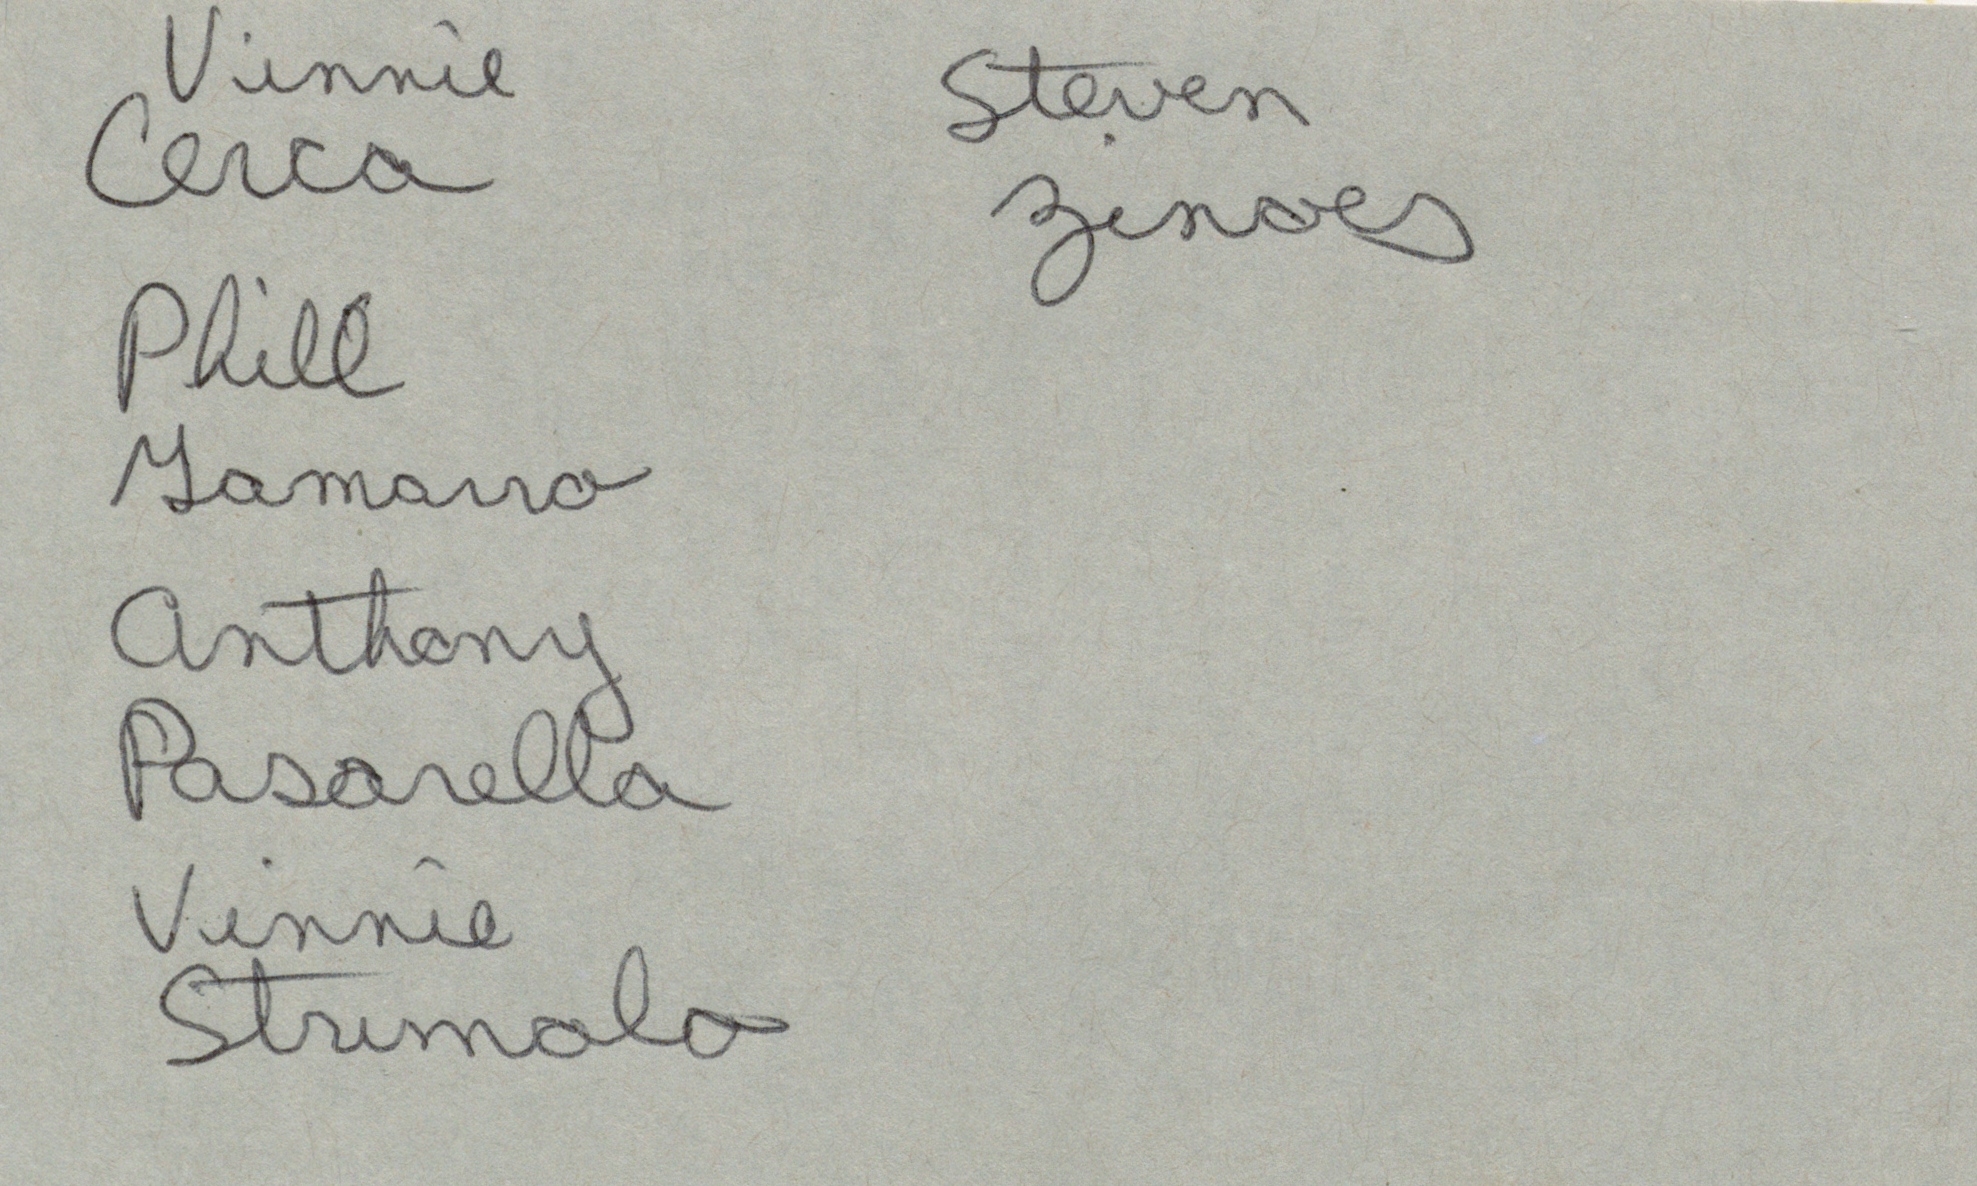 Vinnie
Cerca
Phill
Gamarro
Anthony
Pasarella
Vinnie
Strimala
Steven
Zinoes